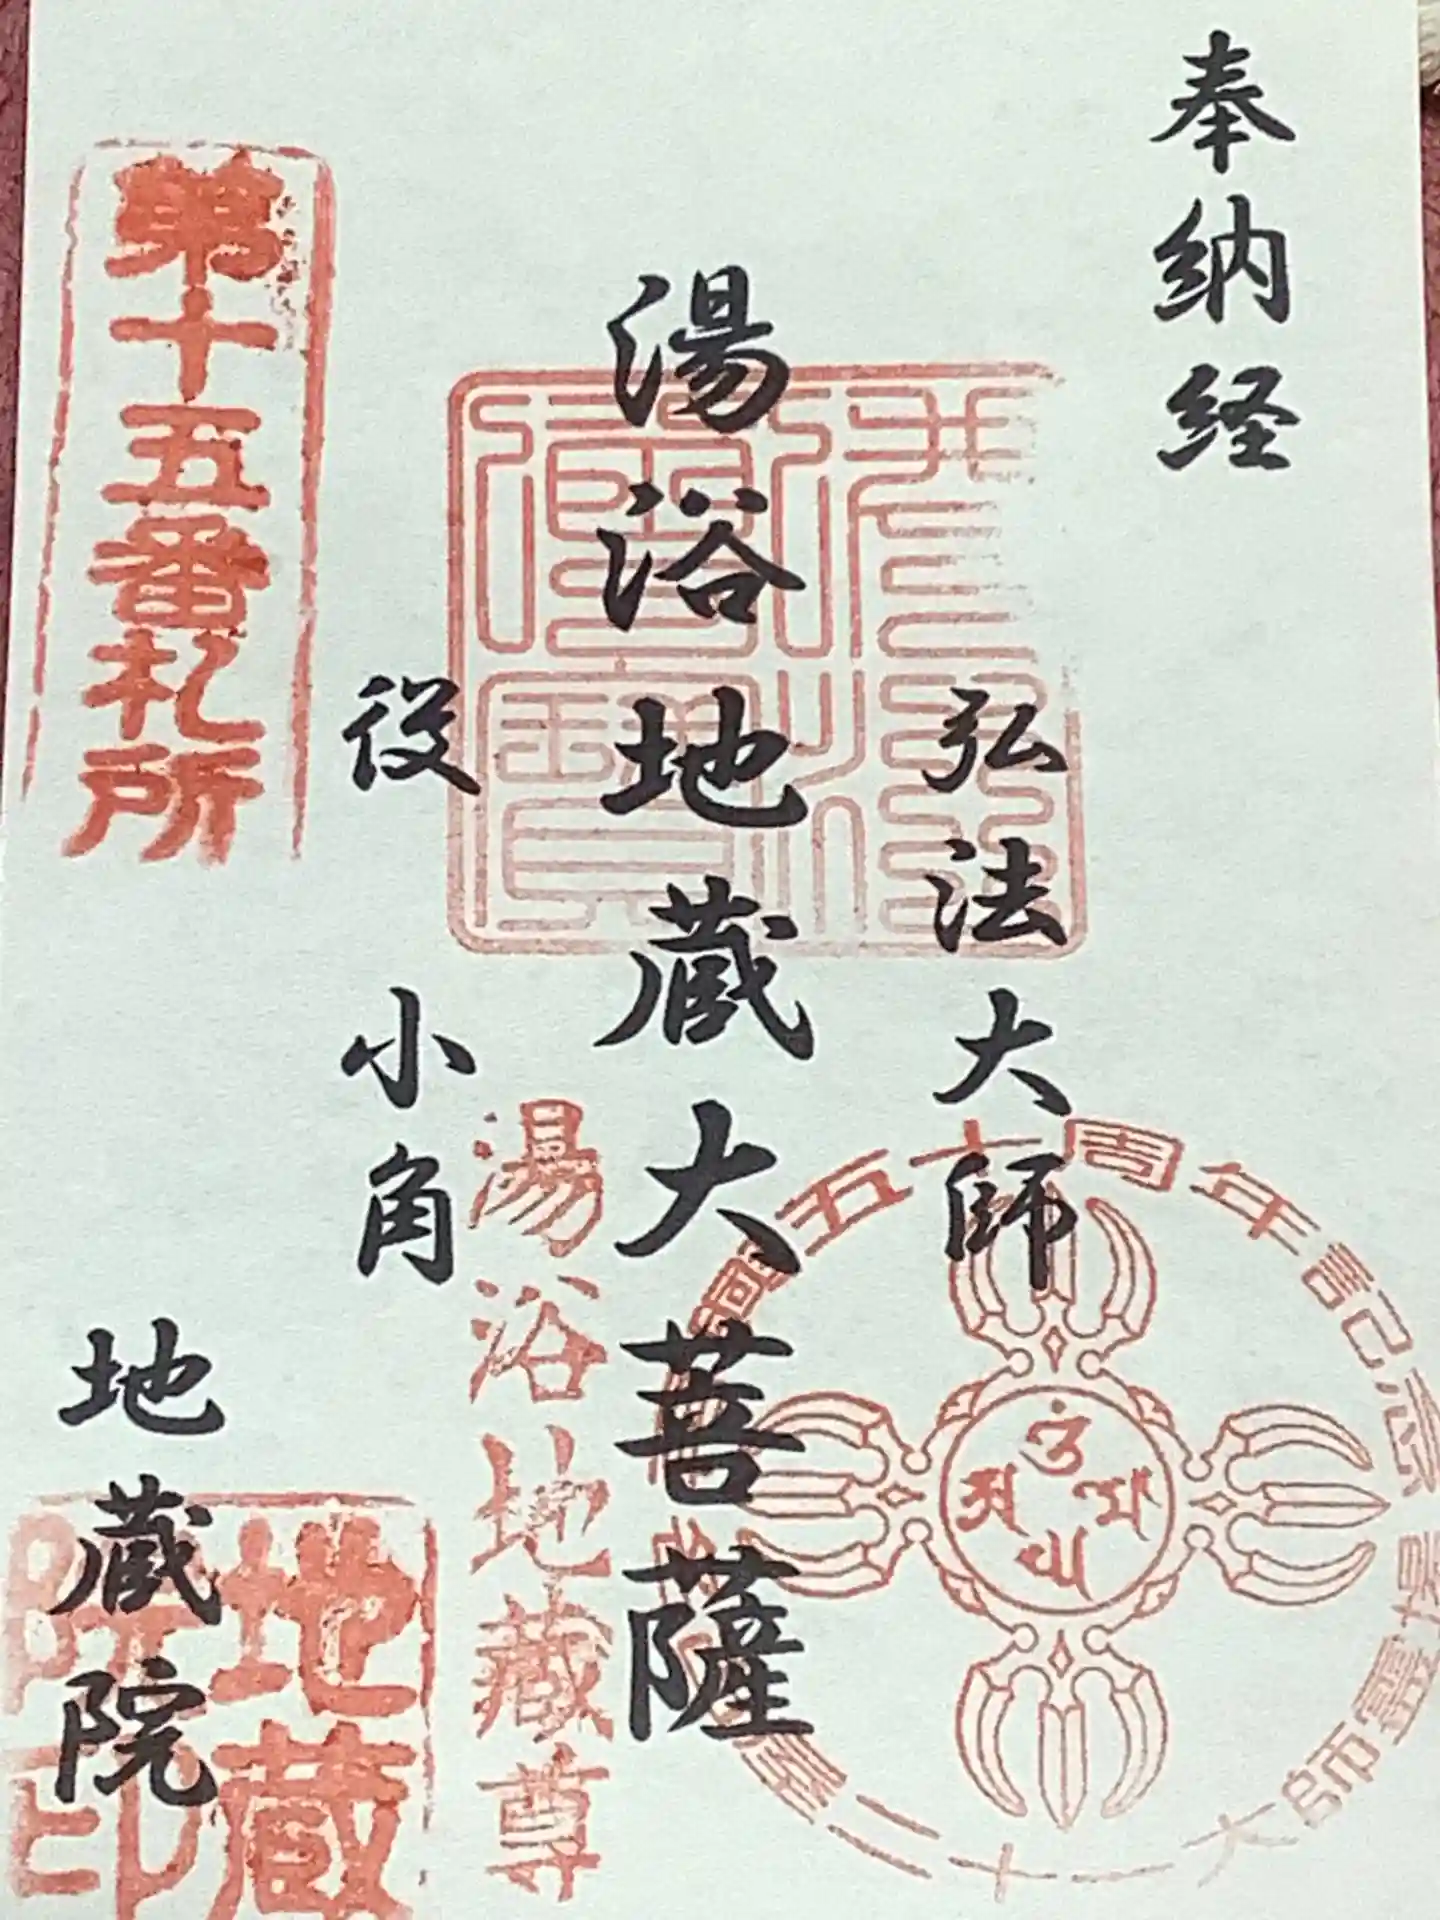 奉納経
弘法大師
湯浴地蔵大菩薩
役小角
地蔵院
第十五番札所
佛法僧寳
湯浴地蔵尊
地蔵院印
五十周年記念
大師霊場
二十一